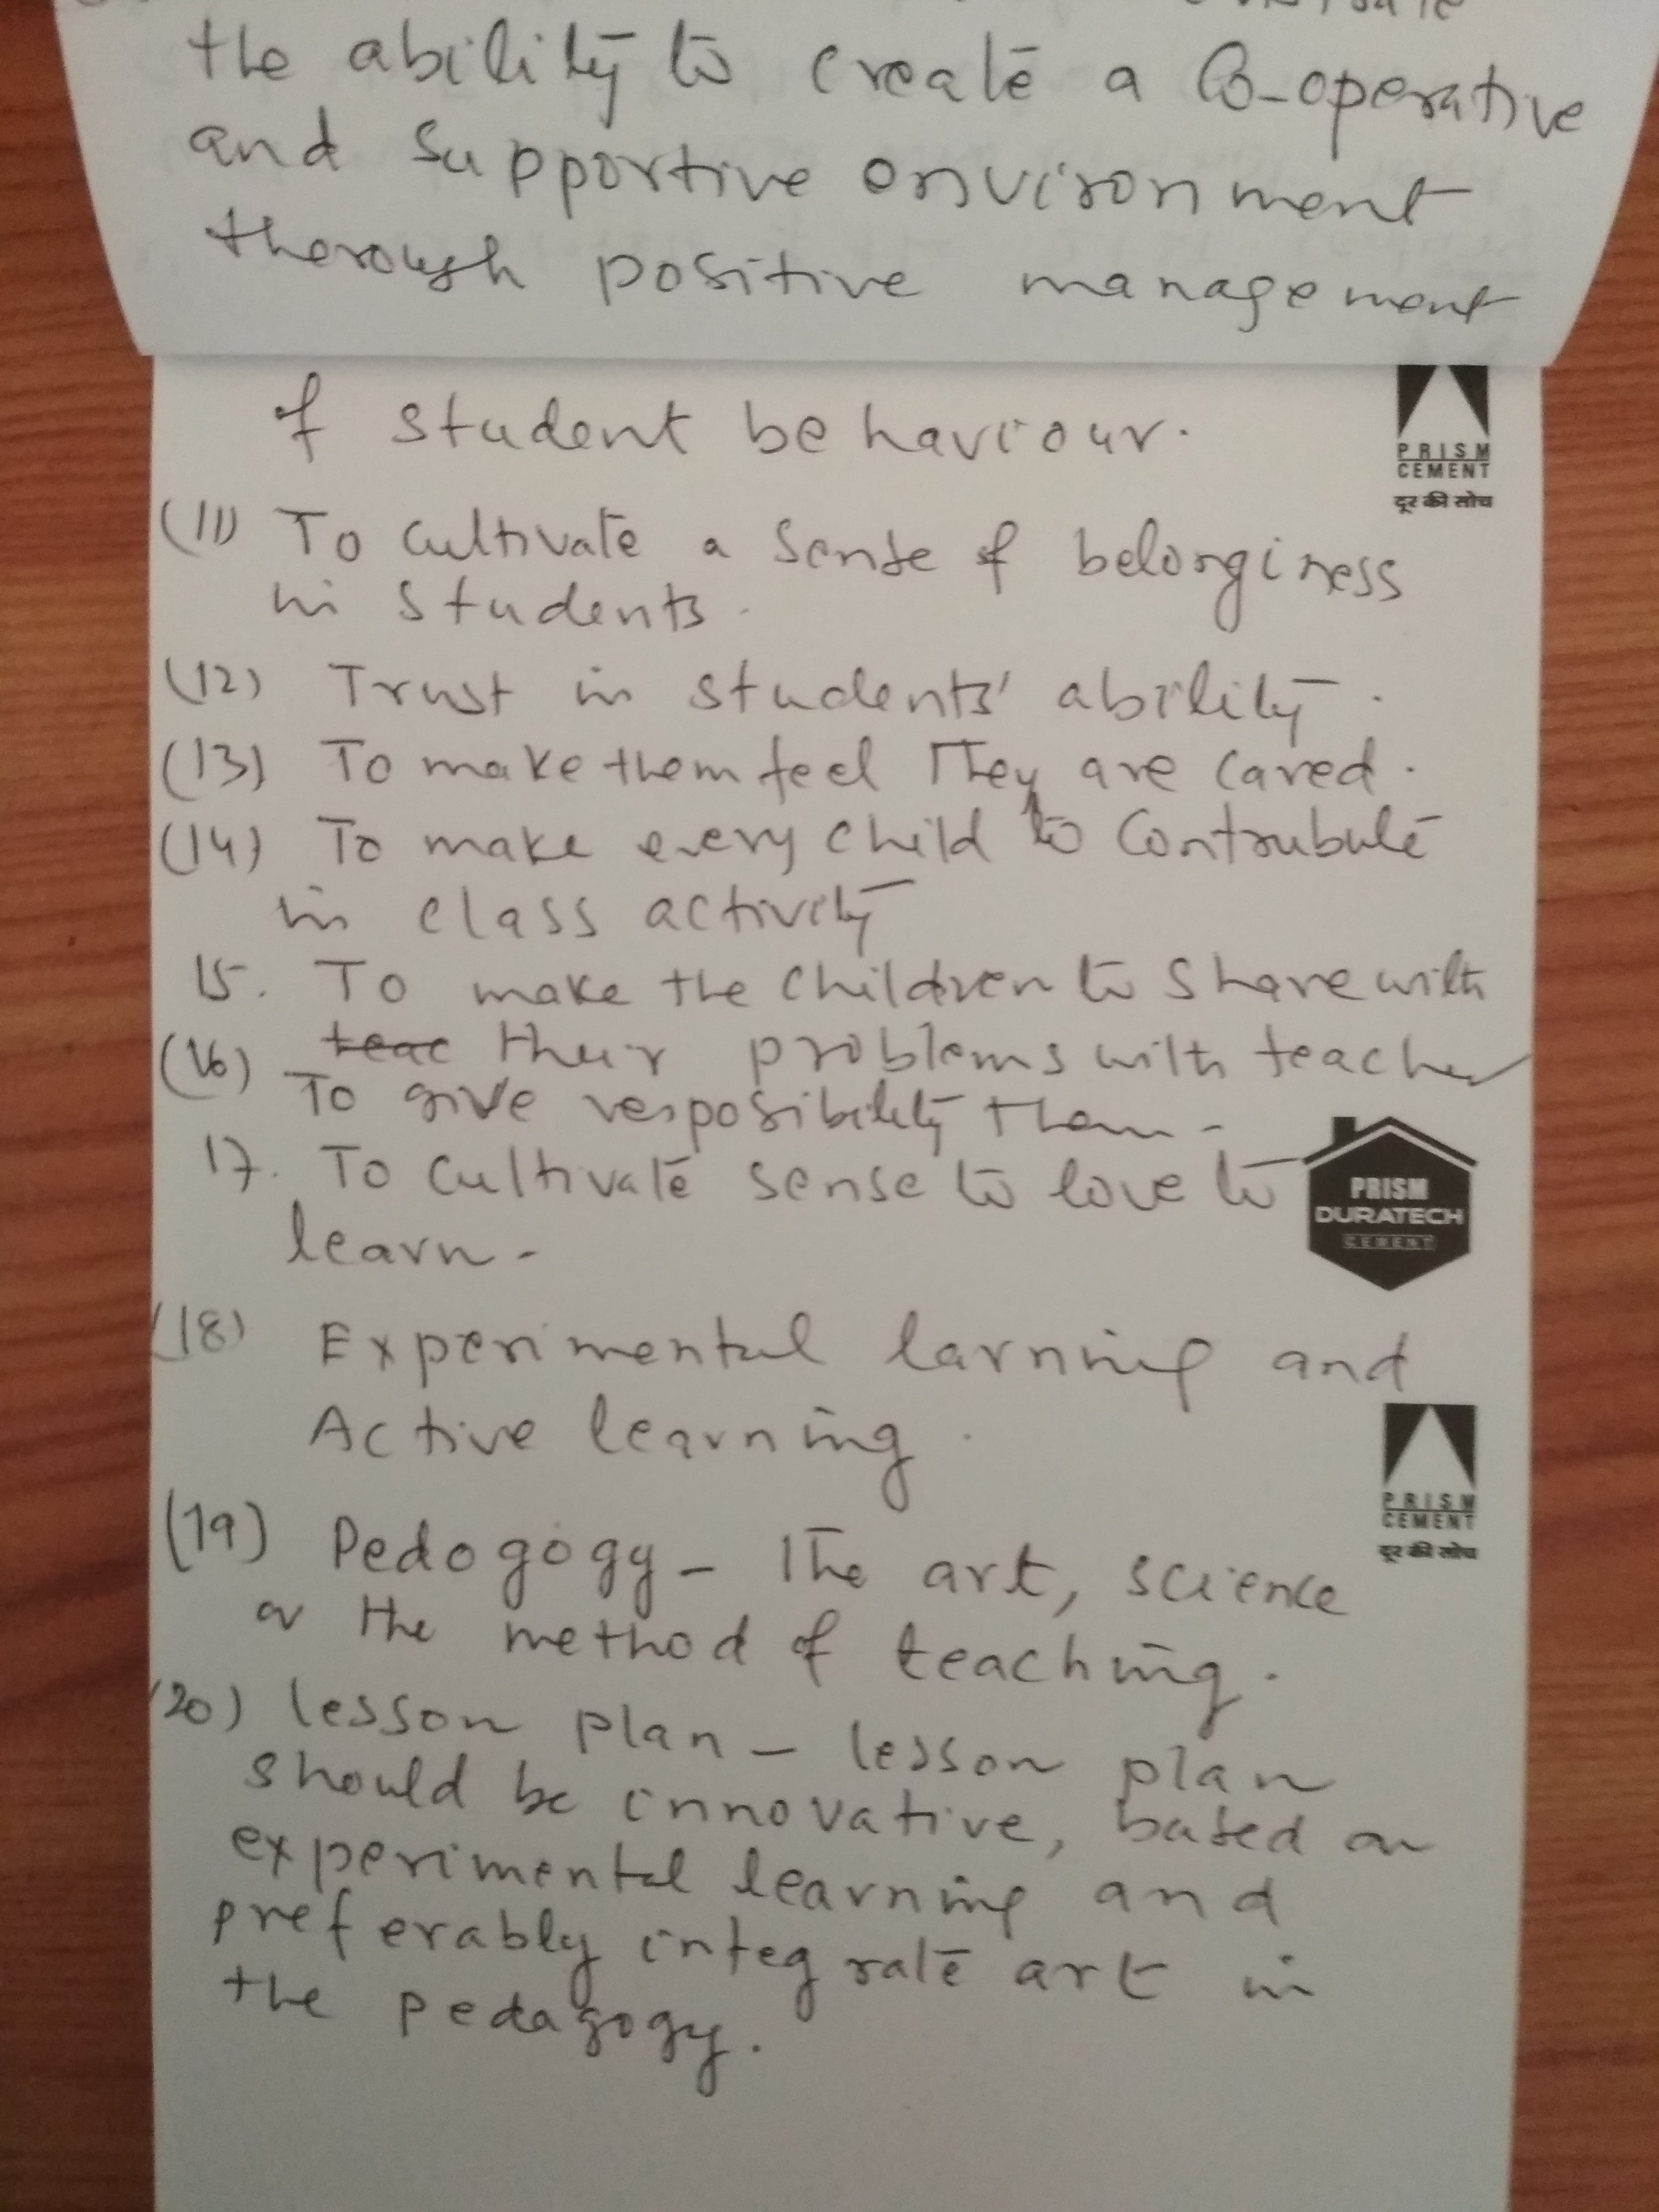 the ability to create a Co-operative
and supportive environment
thorough positive management
of student behaviour.
PRISM
CEMENT
दूर की सोच
(11) To cultivate a sense of belonginess
in students.
(12) Trust in students' ability.
(13) To make them feel They are cared.
(14) To make every child to Contrubute
in class activity
15. To make the children to share with
teac their problems with teacher
(16) To give resposibility them-
17. To cultivate sense to love to
learn-
PRISM
DURATECH
CEMENT
(18) Experimental larning and
Active learning.
PRISM
CEMENT
दूर की सोच
(19) Pedogogy - The art, science
or the method of teaching.
(20) lesson plan - lesson plan
should be innovative, based on
experimental learning and
preferably integrate art in
the pedagogy.